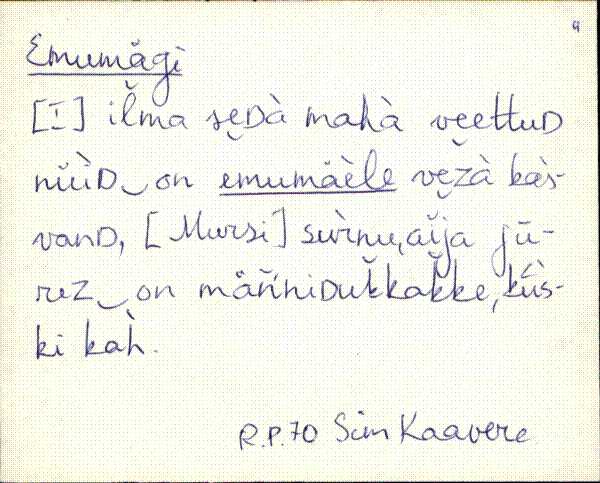 9
Emumägi
[I] il̆ma sĕᴅà mahà vĕettuᴅ
nǜìᴅ‿on emumäèle vĕžà kàs-
vanᴅ, [Mursi] sùrnu,aĭja jū-
rez‿on mäňniᴅuk̆kak̆ke,kǖs-
ki kah̀.
R.P.70 Sim Kaavere